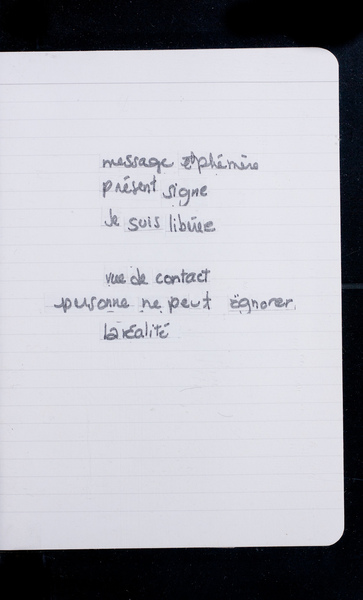 message éphémère
présent signe
Je suis libérée
vue de contact
personne ne peut ignorer
la réalité